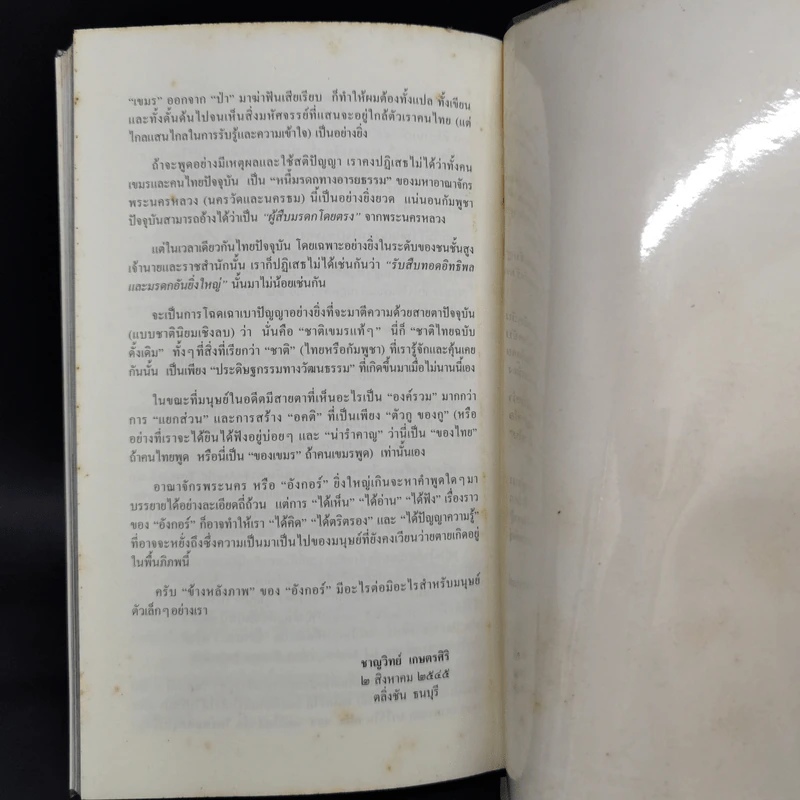 “เขมร” ออกจาก “ป่า” มาฆ่าฟันเสียเรียบ ก็ทำให้ผมต้องทั้งแปล ทั้งเขียน
และทั้งดั้นด้นไปจนเห็นสิ่งมหัศจรรย์ที่แสนจะอยู่ใกล้ตัวเราคนไทย (แต่
ไกลแสนไกลในการรับรู้และความเข้าใจ) เป็นอย่างยิ่ง
ถ้าจะพูดอย่างมีเหตุผลและใช้สติปัญญา เราคงปฏิเสธไม่ได้ว่าทั้งคน
เขมรและคนไทยปัจจุบัน เป็น “หนี้มรดกทางอารยธรรม” ของมหาอาณาจักร
พระนครหลวง (นครวัดและนครธม) นี้เป็นอย่างยิ่งยวด แน่นอนกัมพูชา
ปัจจุบันสามารถอ้างได้ว่าเป็น “ผู้สืบมรดกโดยตรง” จากพระนครหลวง
แต่ในเวลาเดียวกันไทยปัจจุบัน โดยเฉพาะอย่างยิ่งในระดับของชนชั้นสูง
เจ้านายและราชสำนักนั้น เราก็ปฏิเสธไม่ได้เช่นกันว่า “รับสืบทอดอิทธิพล
และมรดกอันยิ่งใหญ่” นั้นมาไม่น้อยเช่นกัน
จะเป็นการโฉดเฉาเบาปัญญาอย่างยิ่งที่จะมาตีความด้วยสายตาปัจจุบัน
(แบบชาตินิยมเชิงลบ) ว่า นั่นคือ “ชาติเขมรแท้ๆ” นี่ก็ “ชาติไทยฉบับ
ดั้งเดิม” ทั้งๆ ที่สิ่งที่เรียกว่า “ชาติ” (ไทยหรือกัมพูชา) ที่เรารู้จักและคุ้นเคย
กันนั้น เป็นเพียง “ประดิษฐกรรมทางวัฒนธรรม” ที่เกิดขึ้นมาเมื่อไม่นานนี้เอง
ในขณะที่มนุษย์ในอดีตมีสายตาที่เห็นอะไรเป็น “องค์รวม” มากกว่า
การ “แยกส่วน” และการสร้าง “อคติ” ที่เป็นเพียง “ตัวกู ของกู” (หรือ
อย่างที่เราจะได้ยินได้ฟังอยู่บ่อยๆ และ “น่ารำคาญ” ว่านี่เป็น “ของไทย”
ถ้าคนไทยพูด หรือนี่เป็น “ของเขมร” ถ้าคนเขมรพูด) เท่านั้นเอง
อาณาจักรพระนคร หรือ “อังกอร์” ยิ่งใหญ่เกินจะหาคำพูดใดๆ มา
บรรยายได้อย่างละเอียดถี่ถ้วน แต่การ “ได้เห็น” “ได้อ่าน” “ได้ฟัง” เรื่องราว
ของ “อังกอร์” ก็อาจทำให้เรา “ได้คิด” “ได้ตริตรอง” และ “ได้ปัญญาความรู้”
ที่อาจจะหยั่งถึงซึ่งความเป็นมาเป็นไปของมนุษย์ที่ยังคงเวียนว่ายตายเกิดอยู่
ในพื้นภิภพนี้
ครับ “ข้างหลังภาพ” ของ “อังกอร์” มีอะไรต่อมิอะไรสำหรับมนุษย์
ตัวเล็กๆ อย่างเรา
ชาญวิทย์ เกษตรศิริ
๒ สิงหาคม ๒๕๔๕
ตลิ่งชัน ธนบุรี